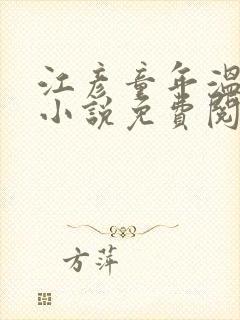 江彦童年溫
小說免費閱
方萍